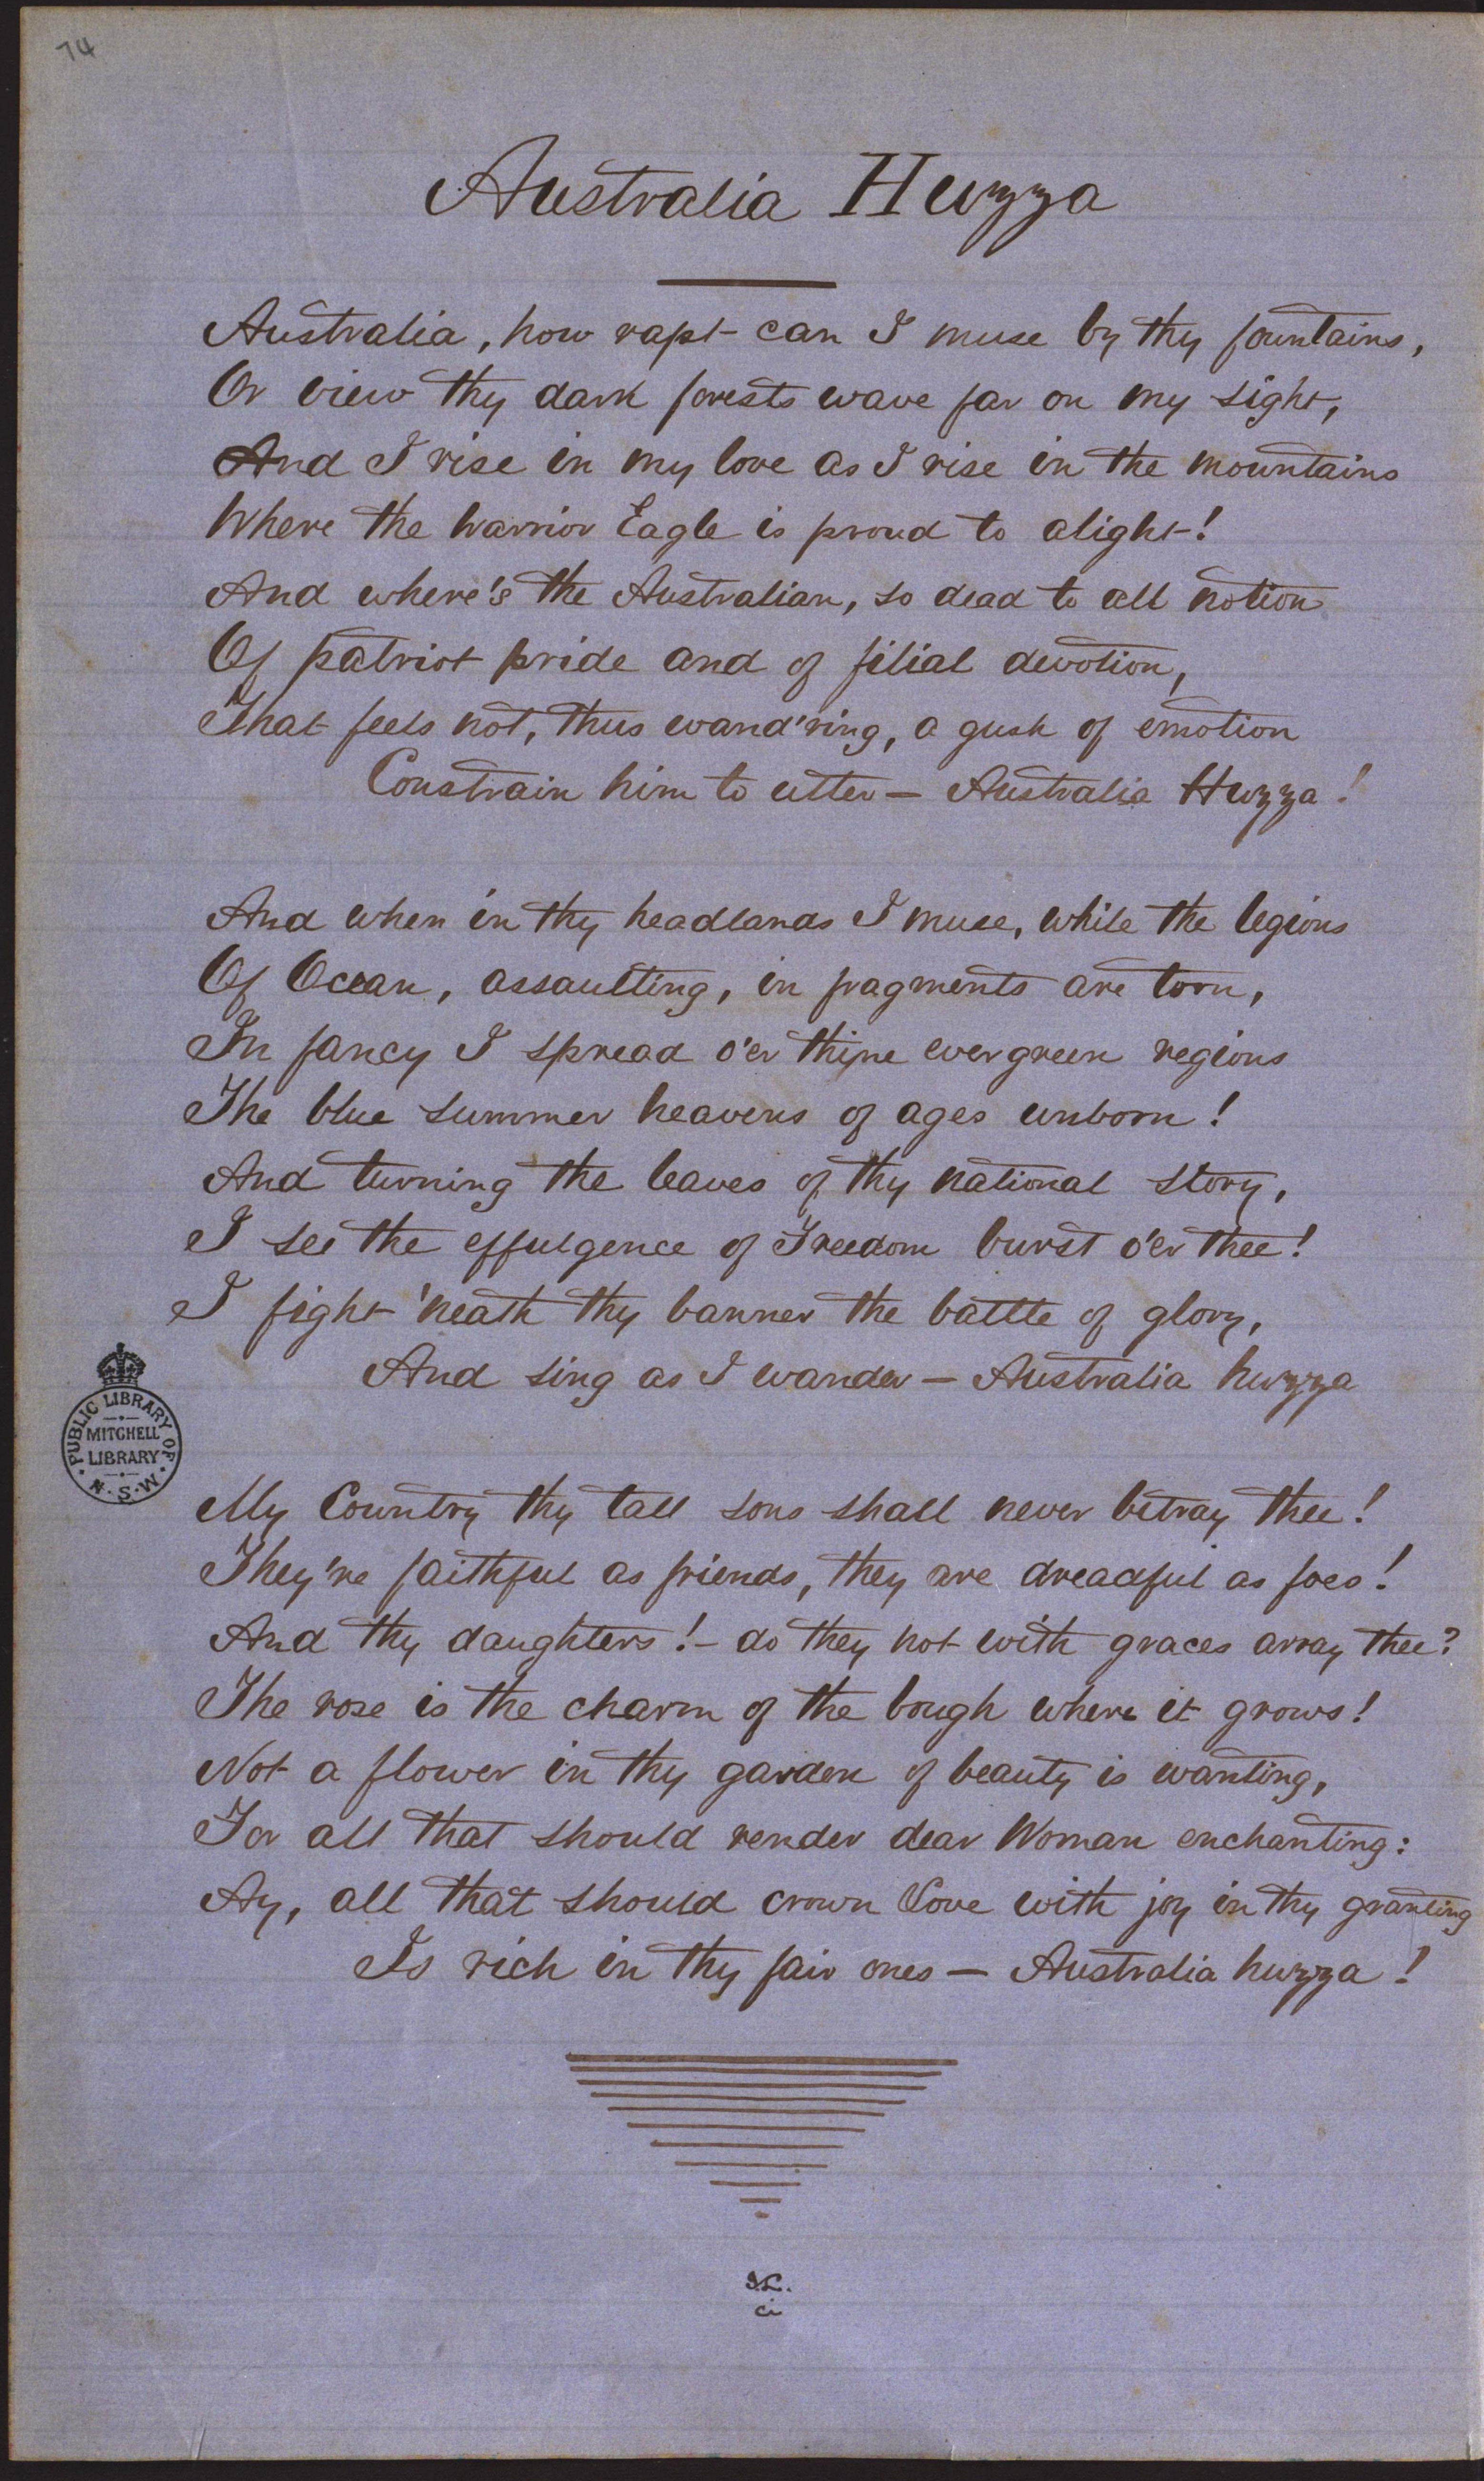 74
Australia Huzza
Australia, how rapt can I muse by thy fountains,
Or view thy dark forests wave far on my sight,
And I rise in my love as I rise in the mountains
Where the Warrior Eagle is proud to alight!
And where's the Australian, so dead to all notion
Of patriot pride and of filial devotion,
That feels not, thus wand'ring, a gush of emotion
Constrain him to utter — Australia Huzza!
And when in thy headlands I muse, while the legions
Of Ocean, assaulting, in fragments are torn,
In fancy I spread o'er thine evergreen regions
The blue summer heavens of ages unborn!
And turning the leaves of thy national story,
I see the effulgence of Freedom burst o'er thee!
I fight 'neath thy banner the battle of glory,
And sing as I wander — Australia huzza
PUBLIC LIBRARY OF N.S.W.
MITCHELL
LIBRARY
My Country thy tall sons shall never betray thee!
They're faithful as friends, they are dreadful as foes!
And thy daughters! - do they not with graces array thee?
The rose is the charm of the bough where it grows!
Not a flower in thy garden of beauty is wanting,
For all that should render dear Woman enchanting:
Ay, all that should crown Love with joy in thy granting
Is rich in thy fair ones — Australia huzza!